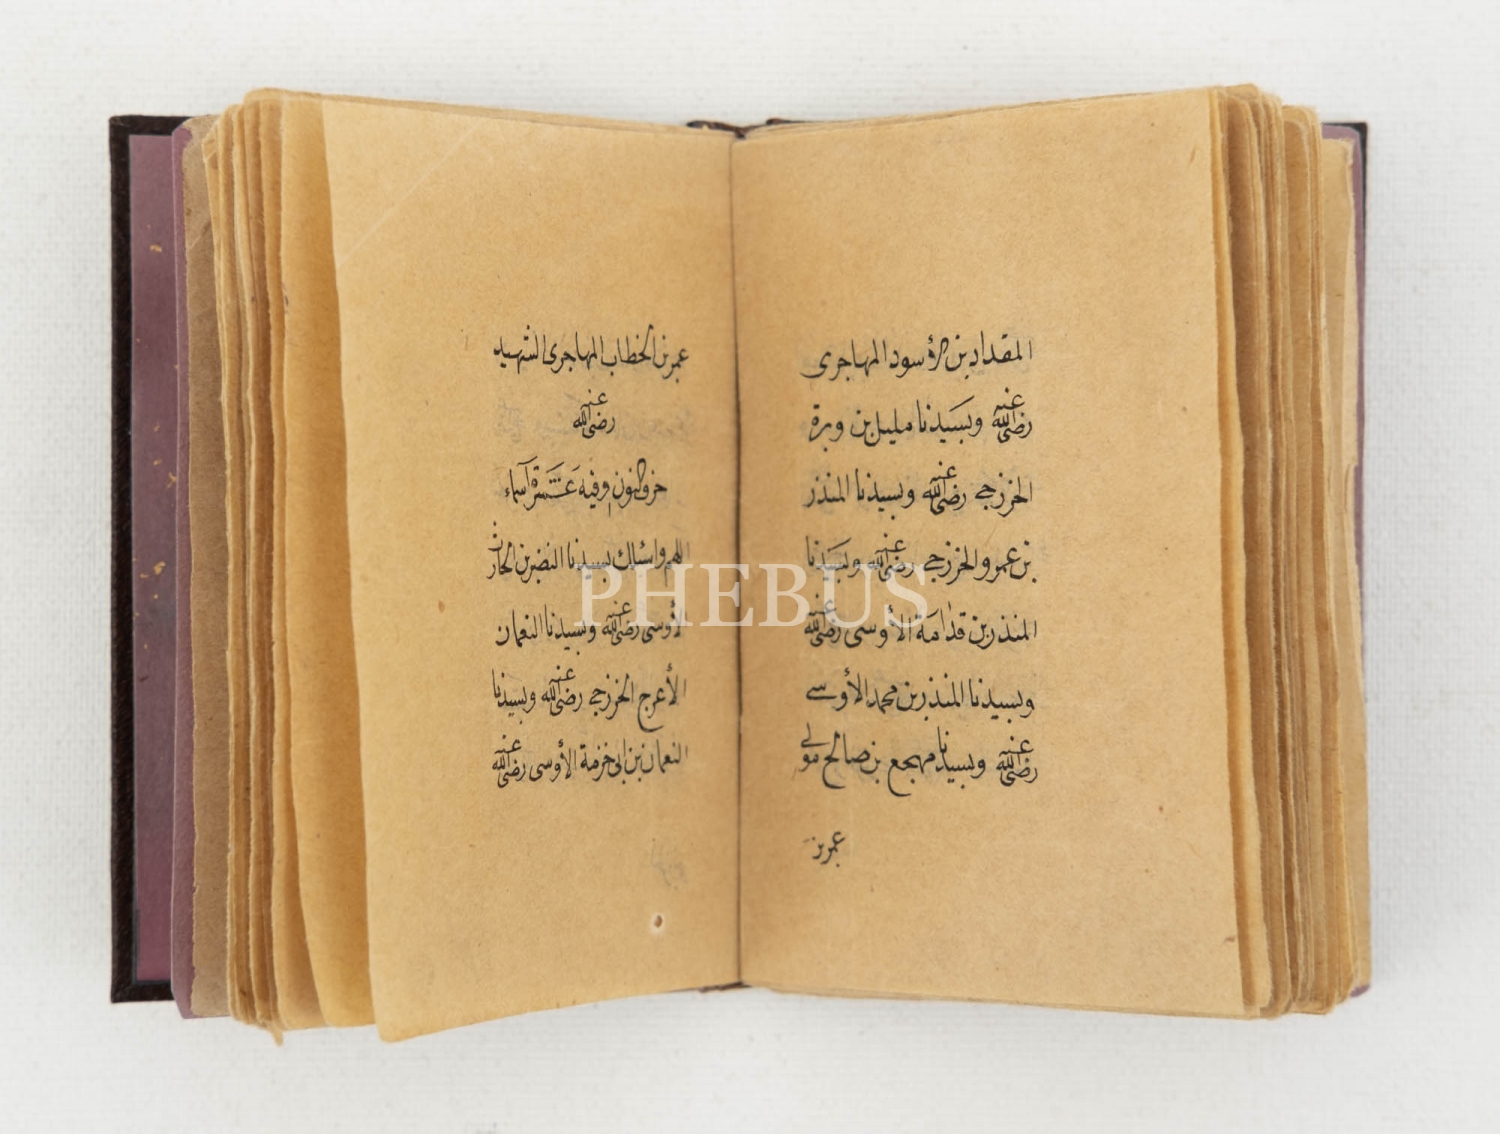 المقداد بن الأسود المهاجرى
رضى الله عنه وبسيدنا مليل بن وبرة
الخزرجى رضى الله عنه وبسيدنا المنذر
بن عمرو الخزرجى رضى الله عنه وبسيدنا
المنذر بن قدامة الأوسى رضى الله عنه
وبسيدنا المنذر بن محمد الأوسى
رضى الله عنه وبسيدنا مهجع بن صالح مولى
عمر بن
عمر بن الخطاب المهاجرى الشهيد
رضى الله عنه
حرف النون وفيه عشرة أسماء
اللهم واسئلك بسيدنا النضر بن الحارث
الأوسى رضى الله عنه وبسيدنا النعمان
الأعرج الخزرجى رضى الله عنه وبسيدنا
النعمان بن ابى خزمة الأوسى رضى الله عنه
PHEBUS